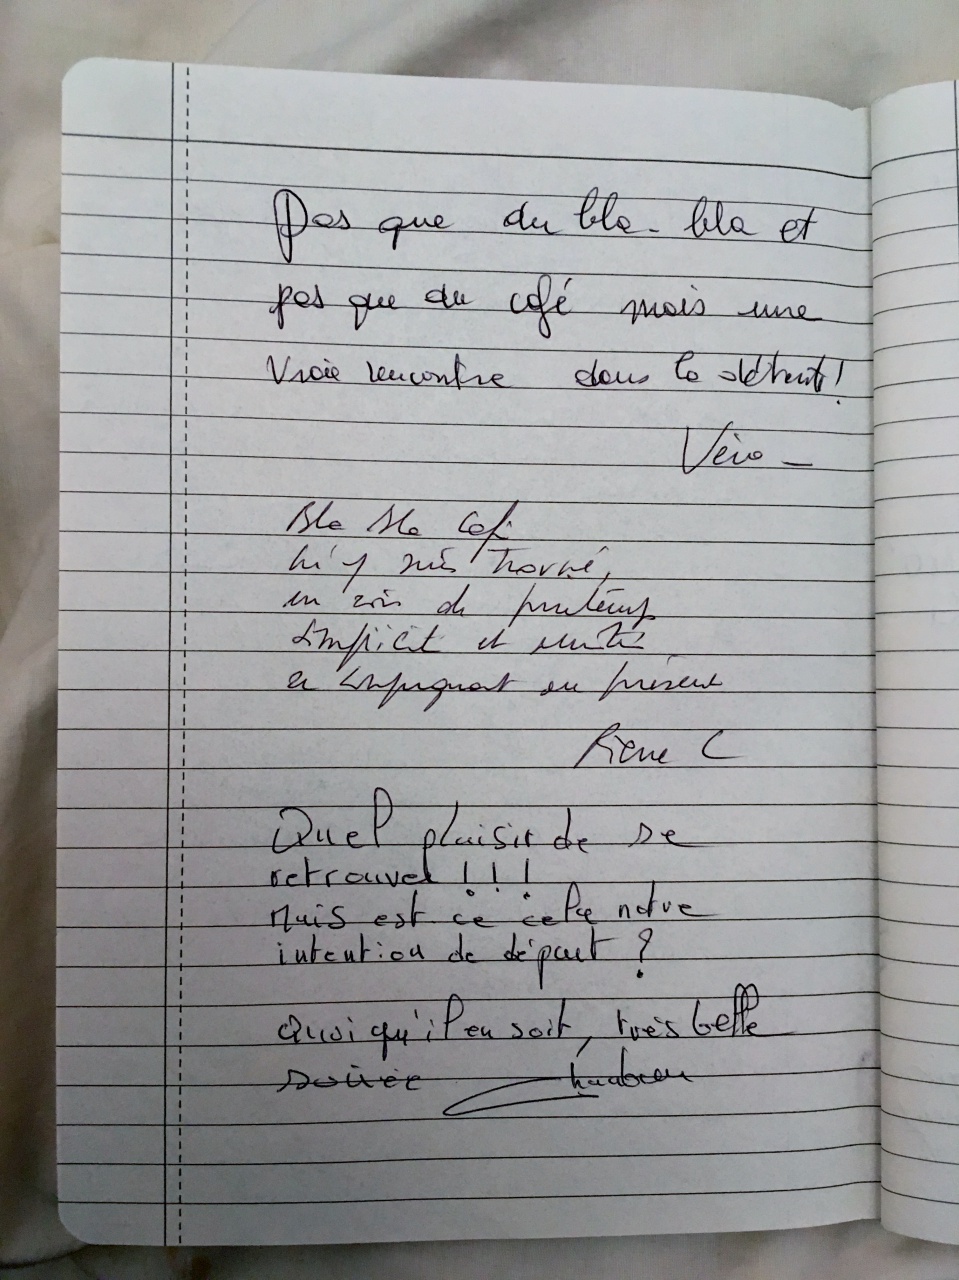 Pas que du bla-bla et
pas que du café mais une
vraie rencontre dans la détente!
Véro
Bla Bla Café
m'y suis trouvé,
un soir de printemps
simplicité et
en compagnant au présent
Pierre C
Quel plaisir de se
retrouver !!!
Mais est ce cela notre
intention de départ ?
Quoi qu'il en soit, très belle
soirée